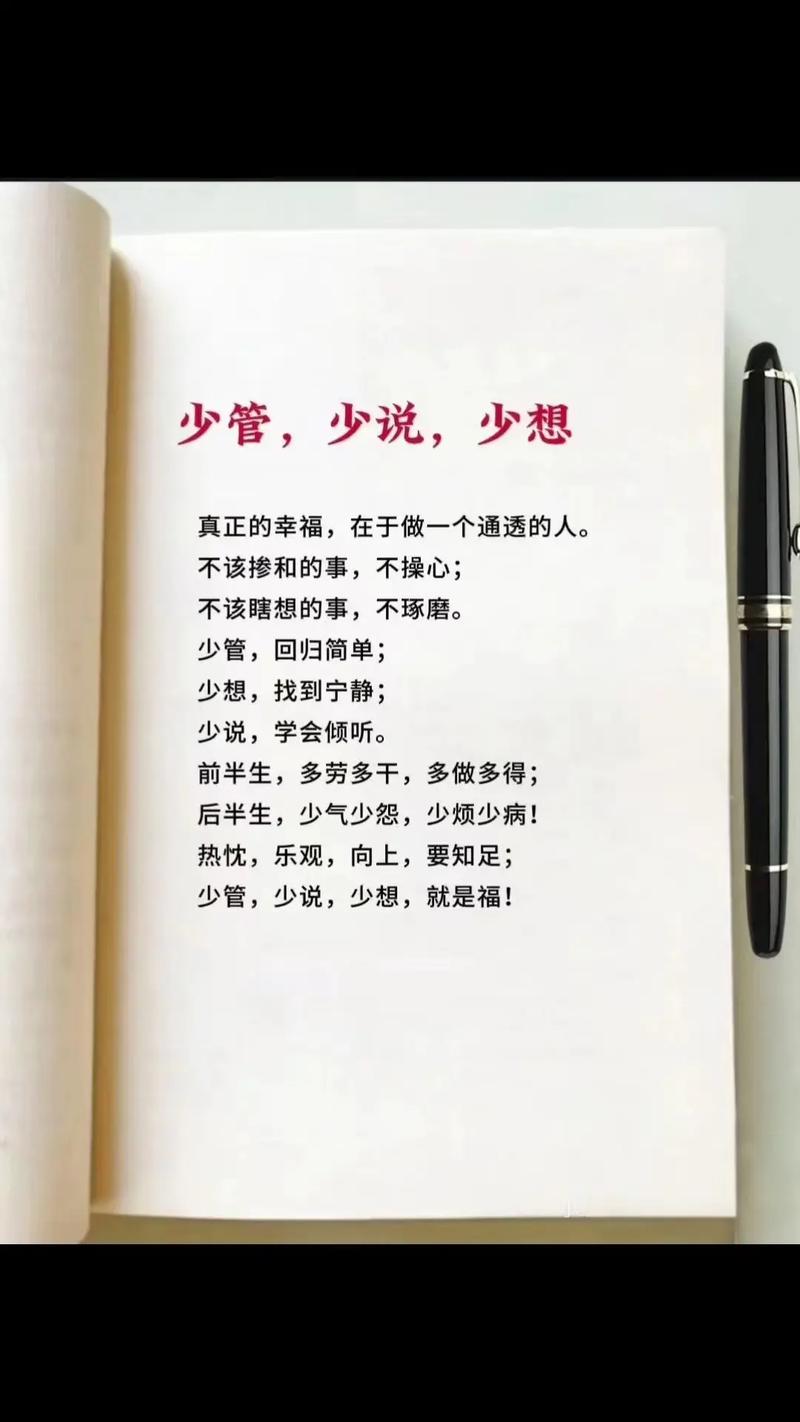 少管，少说，少想
真正的幸福，在于做一个通透的人。
不该掺和的事，不操心；
不该瞎想的事，不琢磨。
少管，回归简单；
少想，找到宁静；
少说，学会倾听。
前半生，多劳多干，多做多得；
后半生，少气少怨，少烦少病！
热忱，乐观，向上，要知足；
少管，少说，少想，就是福！